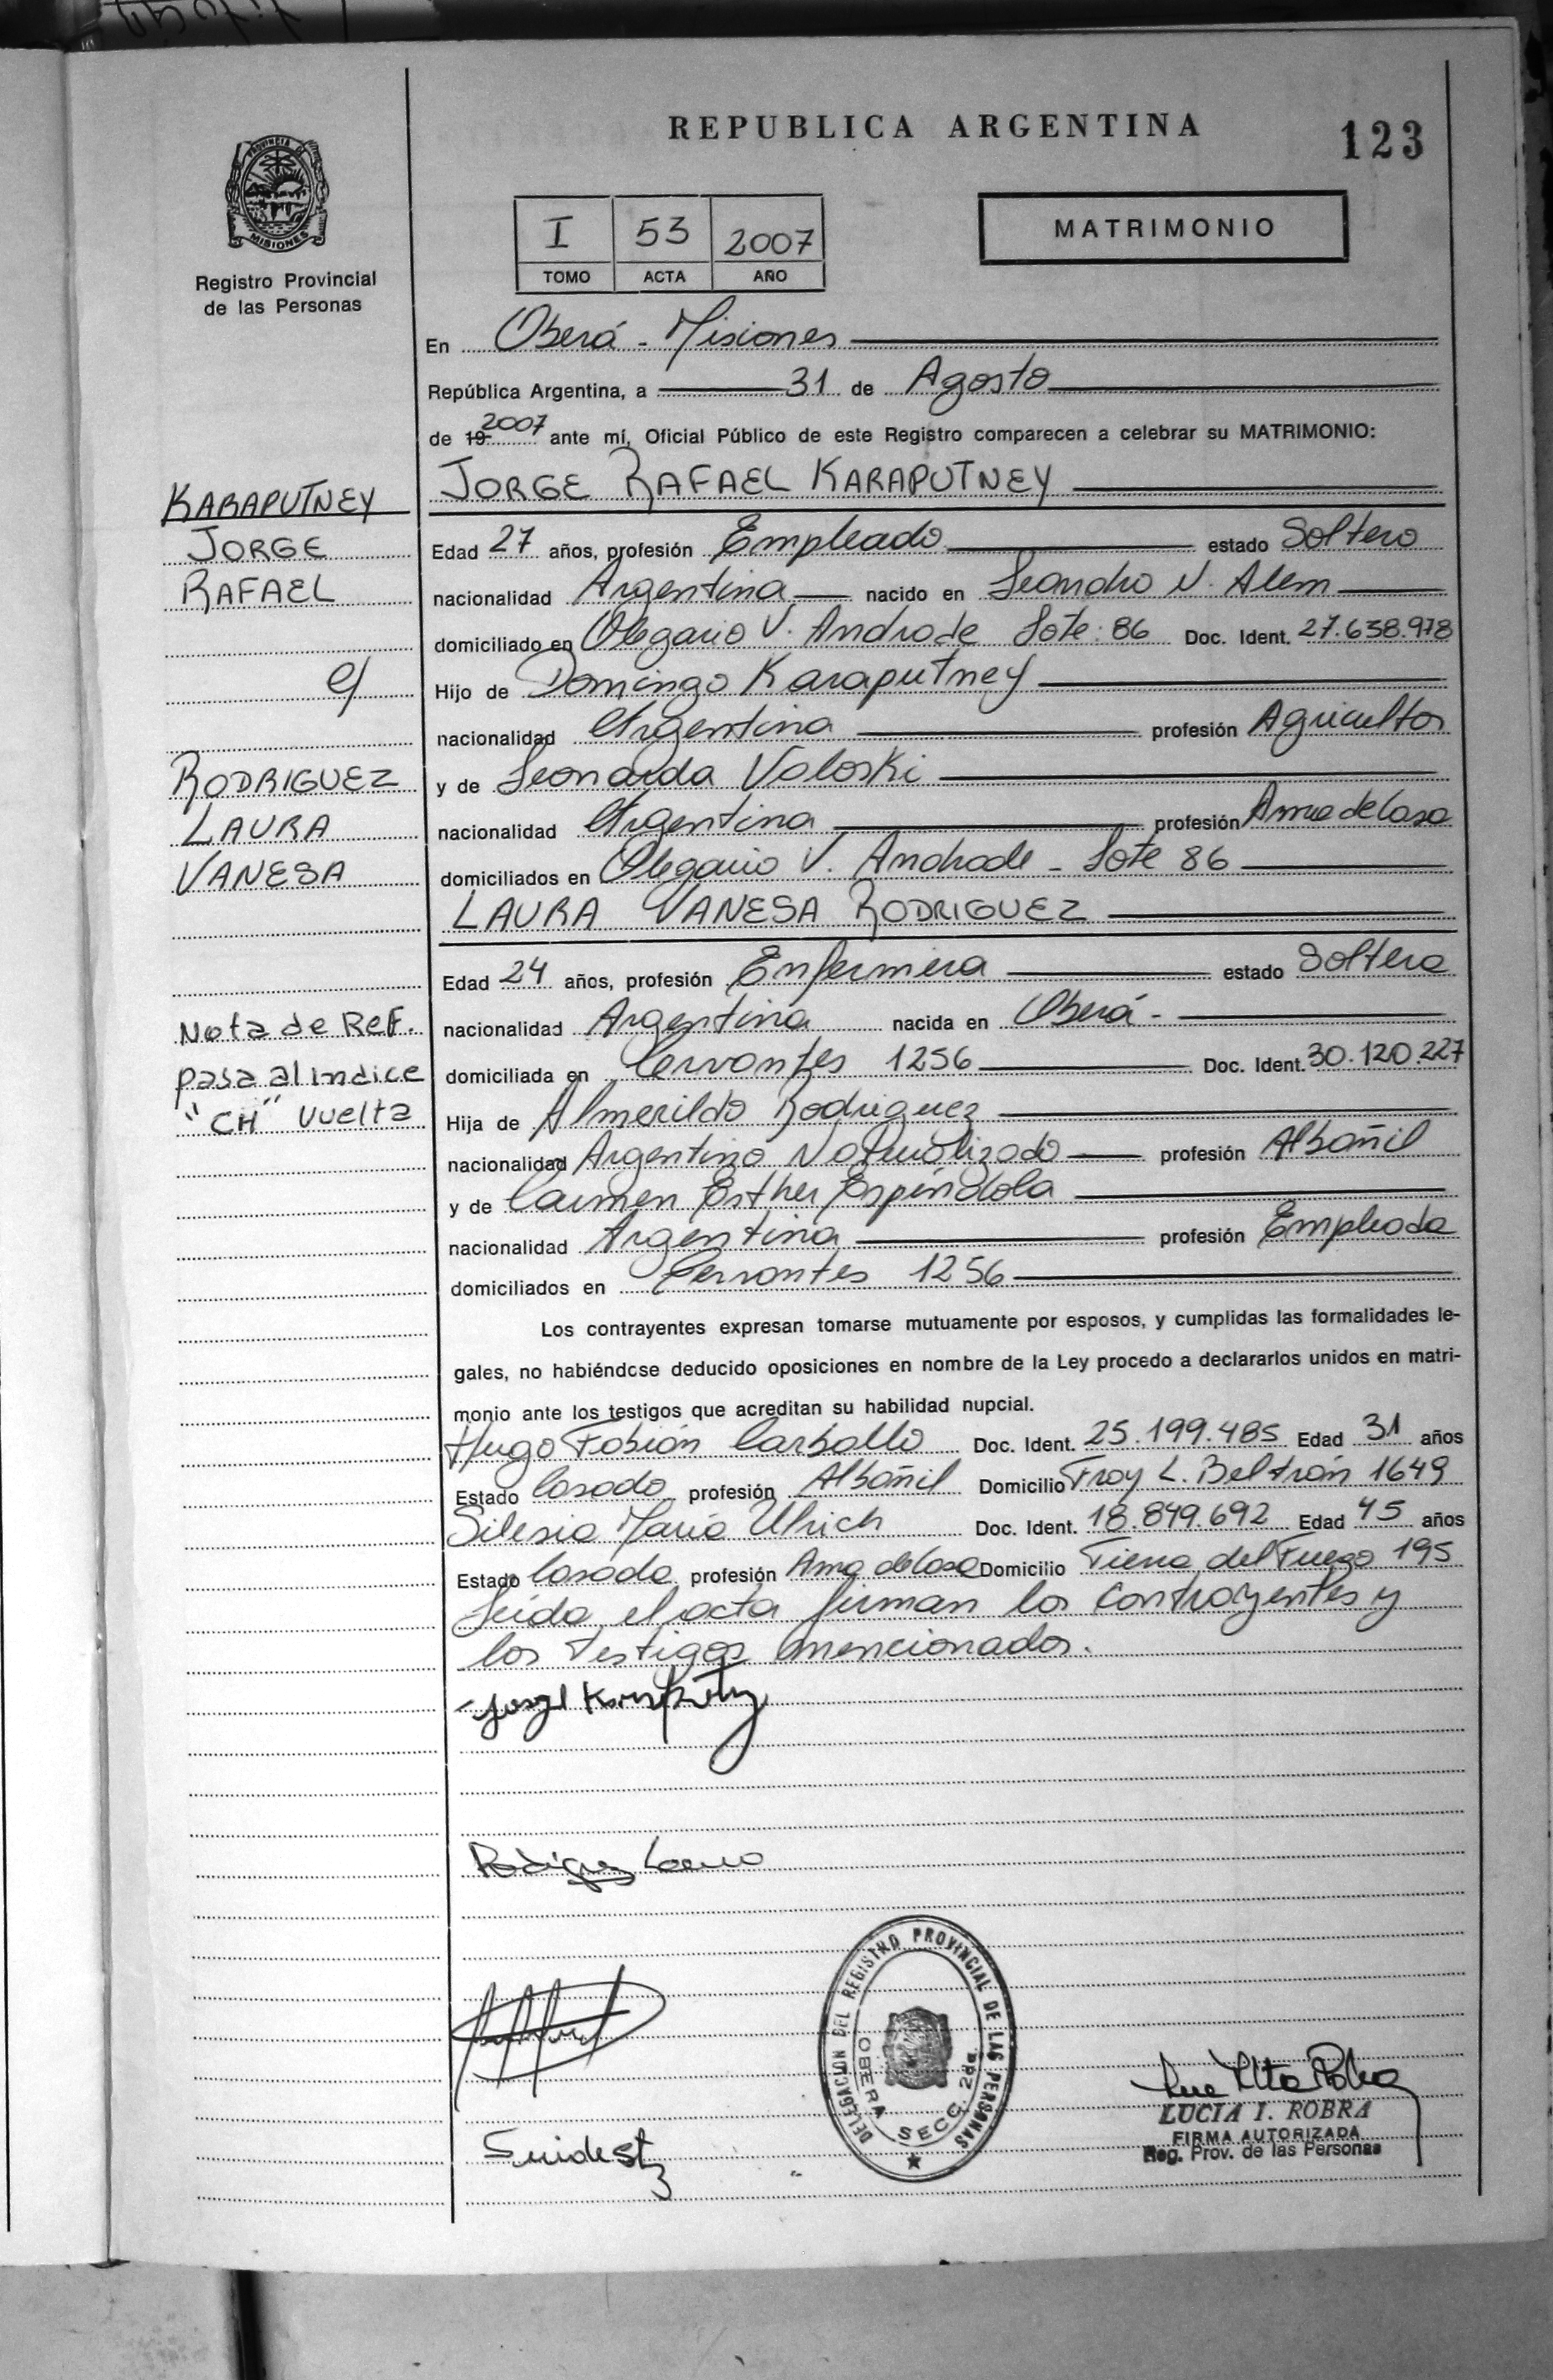 REPUBLICA ARGENTINA
123
PROVINCIA DE
MISIONES
Registro Provincial
de las Personas
I 53 2007
TOMO ACTA AÑO
MATRIMONIO
En Oberá - Misiones
República Argentina, a 31 de Agosto
de 19 2007 ante mí, Oficial Público de este Registro comparecen a celebrar su MATRIMONIO:
KARAPUTNEY
JORGE
RAFAEL
c/
RODRIGUEZ
LAURA
VANESA
Nota de REF.
pasa al indice
"CH" vuelta
JORGE RAFAEL KARAPUTNEY
Edad 27 años, profesión Empleado estado Soltero
nacionalidad Argentina nacido en Leandro N. Alem
domiciliado en Olegario V. Andrade Lote: 86 Doc. Ident. 27.638.978
Hijo de Domingo Karaputney
nacionalidad Argentina profesión Agricultor
y de Leonarda Voloski
nacionalidad Argentina profesión Ama de Casa
domiciliados en Olegario V. Andrade - Lote 86
LAURA VANESA RODRIGUEZ
Edad 24 años, profesión Enfermera estado Soltera
nacionalidad Argentina nacida en Oberá -
domiciliada en Cervantes 1256 Doc. Ident. 30.120.227
Hija de Almerildo Rodriguez
nacionalidad Argentino Naturalizado profesión Albañil
y de Carmen Esther Espíndola
nacionalidad Argentina profesión Empleada
domiciliados en Cervantes 1256
Los contrayentes expresan tomarse mutuamente por esposos, y cumplidas las formalidades le-
gales, no habiéndose deducido oposiciones en nombre de la Ley procedo a declararlos unidos en matri-
monio ante los testigos que acreditan su habilidad nupcial.
Hugo Fabián Carballo Doc. Ident. 25.199.485 Edad 31 años
Estado Casado profesión Albañil Domicilio Fray L. Beltrán 1649
Silesia María Ulrich Doc. Ident. 18.849.692 Edad 45 años
Estado Casada profesión Ama de Casa Domicilio Tierra del Fuego 195
Leída el acta firman los contrayentes y
los testigos mencionados.
Rodriguez Laura
DELEGACION DEL REGISTRO PROVINCIAL DE LAS PERSONAS
OBERA SECC. 2da.
LUCIA I. ROBRA
FIRMA AUTORIZADA
Reg. Prov. de las Personas